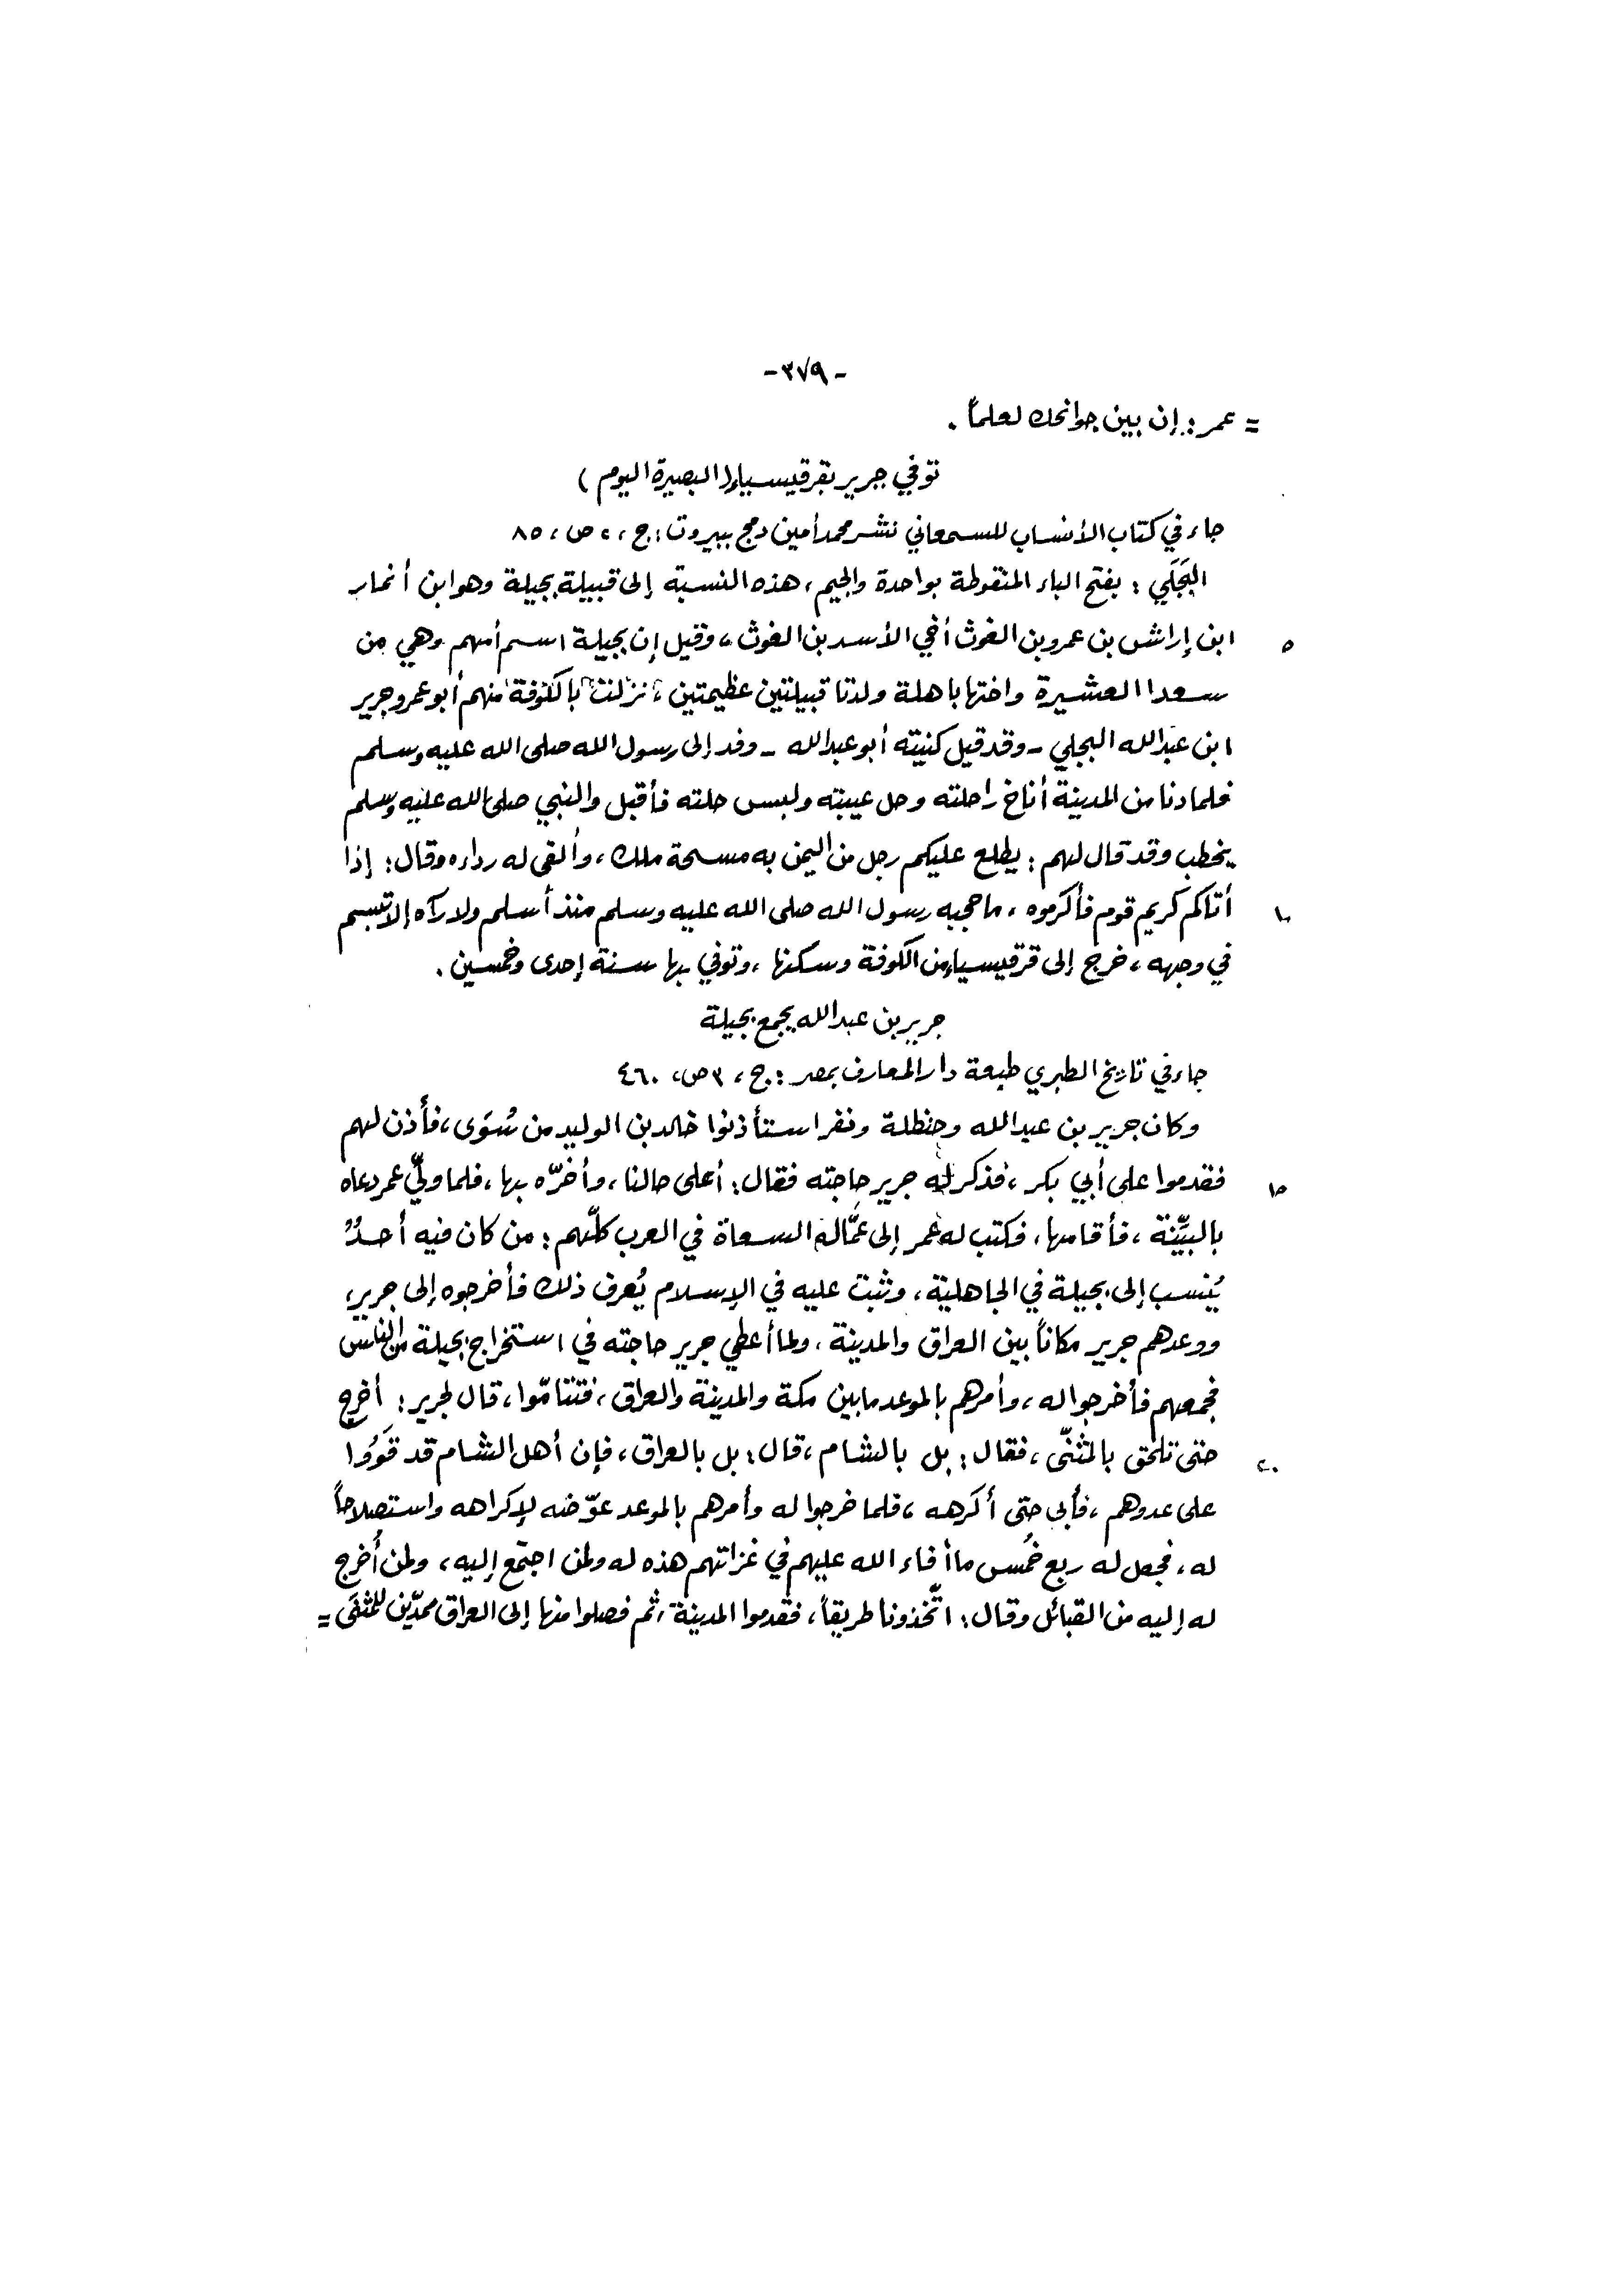 -٣٧٩-
= عمر: إن بين جوانحك لعلماً.
توفي جرير بقرقيسياء (البصيرة اليوم)
جاء في كتاب الأنساب للسمعاني نشر محمد أمين دمج ببيروت: ج، ٢ ص، ٨٥
البَجَلَي: بفتح الباء المنقوطة بواحدة والجيم، هذه النسبة إلى قبيلة بجيلة وهو ابن أنمار
٥ ابن إراش بن عمرو بن الغوث أخي الأسد بن الغوث، وقيل إن بجيلة اسم أمهم وهي من
سعد العشيرة واختها باهلة ولدتا قبيلتين عظيمتين، نزلت بالكوفة منهم أبو عمرو جرير
ابن عبد الله البجلي - وقد قيل كنيته أبو عبد الله - وفد إلى رسول الله صلى الله عليه وسلم
فلما دنا من المدينة أناخ راحلته وحل عيبته ولبس حلته فأقبل والنبي صلى الله عليه وسلم
يخطب وقد قال لهم: يطلع عليكم رجل من اليمن به مسحة ملك، وألقى له رداءه وقال: إذا
١٠ أتاكم كريم قوم فأكرموه، ما حجبه رسول الله صلى الله عليه وسلم منذ أسلم ولا رآه إلا تبسم
في وجهه، خرج إلى قرقيسياء من الكوفة وسكنها، وتوفي بها سنة إحدى وخمسين.
جرير بن عبد الله يجمع بجيلة
جاء في تاريخ الطبري طبعة دار المعارف بمصر: ج، ٣ ص، ٤٦٠
وكان جرير بن عبد الله وحنظلة ونفر استأذنوا خالد بن الوليد من سُوَى، فأذن لهم
١٥ فقدموا على أبي بكر، فذكر له جرير حاجته فقال: أعلى حالنا، وأخّره بها، فلما وليّ عمر دعاه
بالبيِّنة، فأقامها، فكتب له عمر إلى عمَّاله السعاة في العرب كلّهم: من كان فيه أحدٌ
يُنسب إلى بجيلة في الجاهلية، وثبت عليه في الإسلام يُعرف ذلك فأخرجوه إلى جرير،
ووعدهم جرير مكاناً بين العراق والمدينة، ولما أعطي جرير حاجته في استخراج بجيلة من الناس
فجمعهم فأخرجوا له، وأمرهم بالموعد ما بين مكة والمدينة والعراق، فتتامّوا، قال لجرير: أخرج
٢٠ حتى تلحق بالمثنّى، فقال: بل بالشام، قال: بل بالعراق، فإن أهل الشام قد قَوُوا
على عدوهم، فأبى حتى أكرهه، فلما خرجوا له وأمرهم بالموعد عوّضه لإكراهه واستصلاحاً
له، فجعل له ربع خُمس ما أفاء الله عليهم في غزاتهم هذه له ولمن اجتمع إليه، ولمن أُخرج
له إليه من القبائل وقال: اتّخذونا طريقاً، فقدموا المدينة، ثم فصلوا منها إلى العراق ممدّين للمثنى =